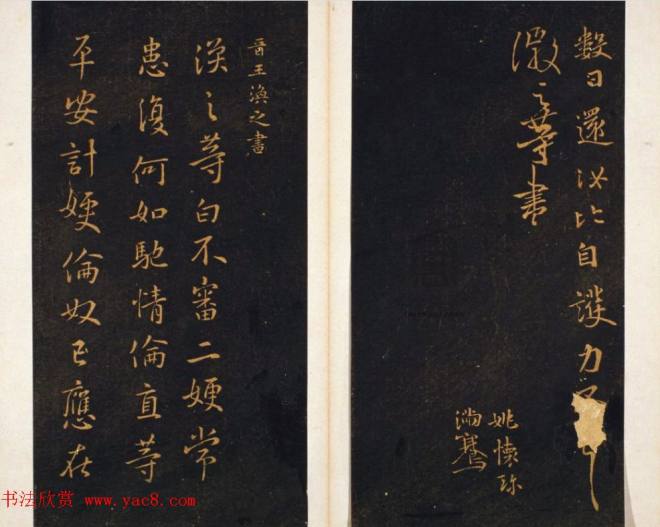 數日還汝比自護力
徽之等書
姚懷珍
滿騫
晉王渙之書
渙之等白不審二嫂常
患復何如馳情倫直等
平安計嫂倫奴已應在
书法欣赏 www.yac8.com